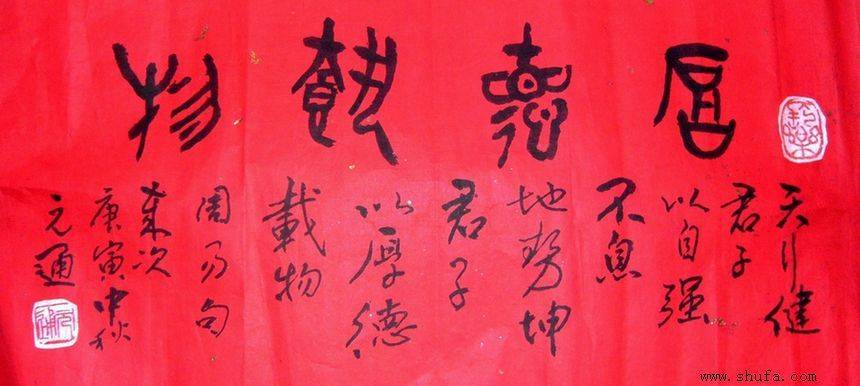 厚德載物
天行健
君子
以自强
不息
地勢坤
君子
以厚德
載物
周易句
歲次
庚寅中秋
元通
www.shufa.com